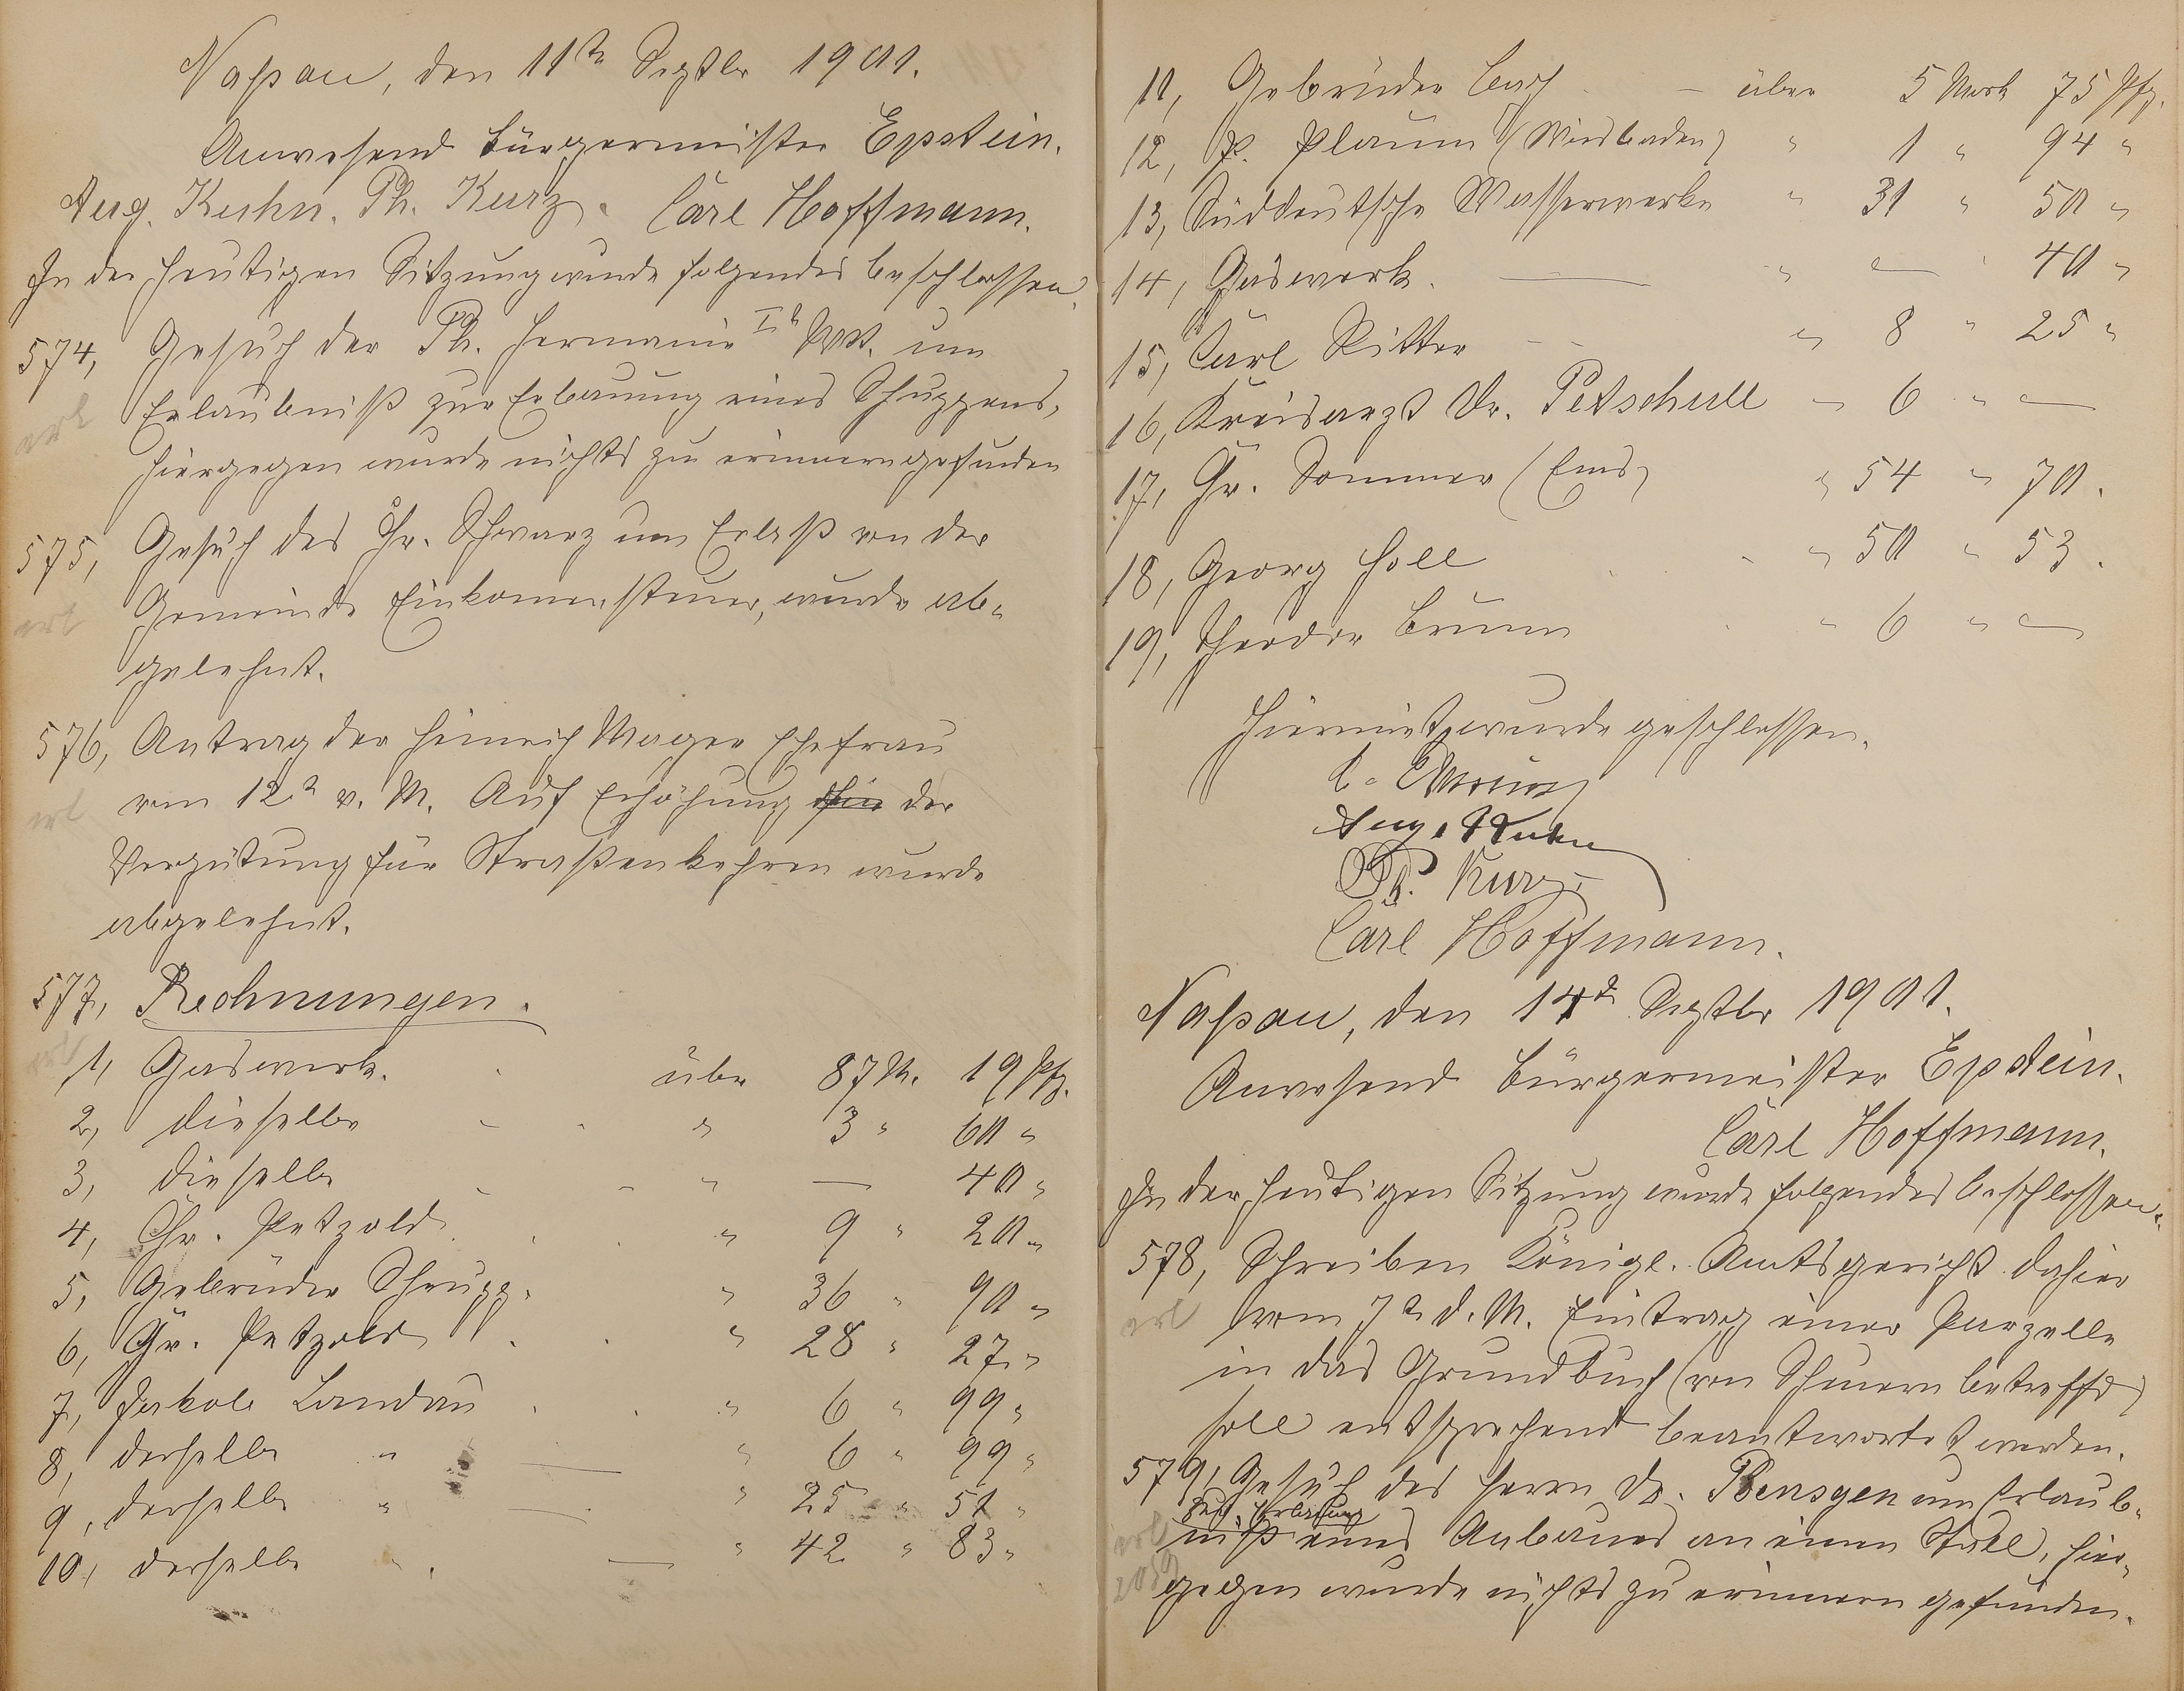 Naßau, den 11ten Septbr 1901.
Anwesend Bürgermeister Epstein.
Aug. Kuhn. Ph. Kurz. Carl Hoffmann.
In der heutigen Sitzung wurde folgendes beschlossen.
574, Gesuch der Ph. Hermanni Ir Ww. um
erl Erlaubniß zur Erbauung eines Schuppens,
hiergegen wurde nichts zu erinnern gefunden
575, Gesuch des Chr. Schwarz um Erlaß von der
erl Gemeinde Einkommensteuer, wurde ab-
gelehnt.
576, Antrag der Heinrich Mager Ehefrau
erl vom 12n v. M. Auf Erhöhung der
Vergütung für Straßenkehren wurde
abgelehnt.
577, Rechnungen.
erl
1, Gaswerk. über 87 M. 19 Pfg.
2, dieselbe " 3 " 60 "
3, dieselbe " — 40 "
4, Chr. Petzold " 9 " 20 "
5, Gebrüder Schrupp. " 36 " 90 "
6, Chr. Petzold " 28 " 27 "
7, Jakob Landau " 6 " 99 "
8, derselbe " — " 6 " 99 "
9, derselbe " — " 25 " 51 "
10, derselbe " — " 42 " 83 "
11, Gebrüder Bach — über 5 Mark 75 Pfg.
12, P. Plaum (Wiesbaden) " 1 " 94 "
13, Süddeutsche Wasserwerke " 31 " 50 "
14, Gaswerk. — " — " 40 "
15, Carl Ritter — " 8 " 25 "
16, Kreisarzt Dr. Petschull " 6 " —
17, Gr. Sommer (Ems) " 54 " 70.
18, Georg Holl " 50 " 53.
19, Theodor Brumm " 6 " —
Hiermit wurde geschlossen.
Aug. Kuhn
Ph. Kurz
Carl Hoffmann.
Naßau, den 14n Septbr 1901.
Anwesend Bürgermeister Epstein.
Carl Hoffmann.
In der heutigen Sitzung wurde folgendes beschlossen.
578, Schreiben Königl. Amtsgericht dahier
erl vom 7n d. M. Eintrag einer Parzelle
in das Grundbuch (von Scheuern betreffd)
soll entsprechend beantwortet werden.
579, Gesuch des Herrn Dr. Bensgen um Erlaub-
erl niß eines Anbaues an einen Stall, hier-
gegen wurde nichts zu erinnern gefunden.